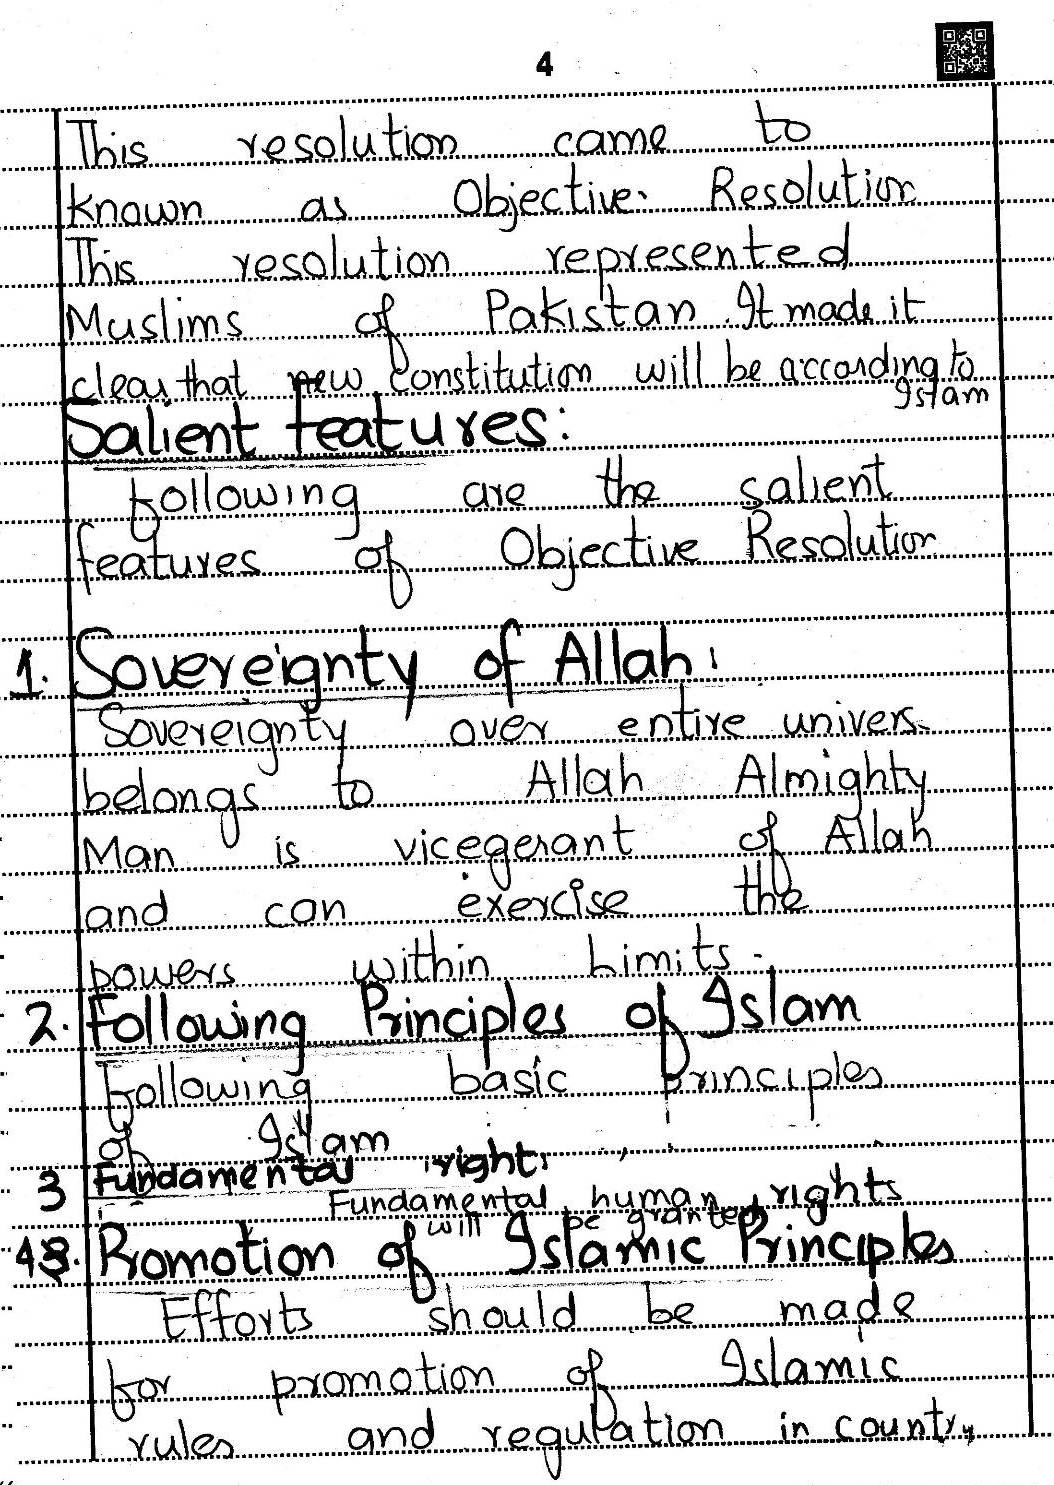 4
This resolution came to
known as Objective Resolution
This resolution represented
Muslims of Pakistan. It made it
clear that new constitution will be according to
Islam
Salient features:
Following are the salient
features of Objective Resolution
1. Sovereignty of Allah:
Sovereignty over entire univers
belongs to Allah Almighty
Man is vicegerant of Allah
and can exercise the
powers within Limits.
2. Following Principles of Islam
Following basic principles
of Islam
3 Fundamental right:
Fundamental human rights
will be granted
4. Promotion of Islamic Principles
Efforts should be made
for promotion of Islamic
rules and regulation in country